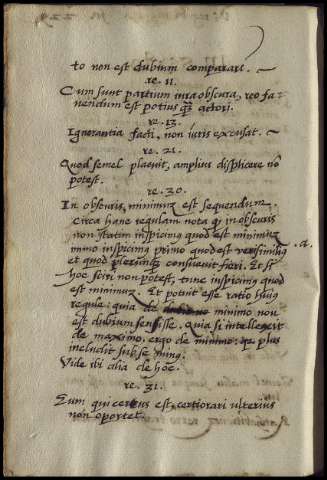 to non est dubium comparari.
re. 11.
Cum sunt partium iura obscura, reo fa-
uendum est potius q̃ȝ actori.
re. 13.
Ignorantia facti, non iuris excusat.
re. 21.
Quod semel placuit, amplius displicere nõ
potest.
re. 30.
In obscuris, minimum est sequendum.
Circa hanc regulam nota q̃ in obscuris
non statim inspicimꝰ quod est minimũ
imo inspicimꝰ primo quod est verisimiliꝰ
et quod plerũqȝ consueuit fieri. Et si
hoc sciri non potest, tunc inspicimꝰ quod
est minimum. Et potuit esse ratio huiꝰ
regule: quia de minimo non
est dubium sensisse. Quia si intellexerit
de maximo, ergo de minimo: plus
includit sub se minꝰ.
Vide ibi alia de hoc.
re. 31.
Eum qui certus est, certiorari ulterius
non oportet.